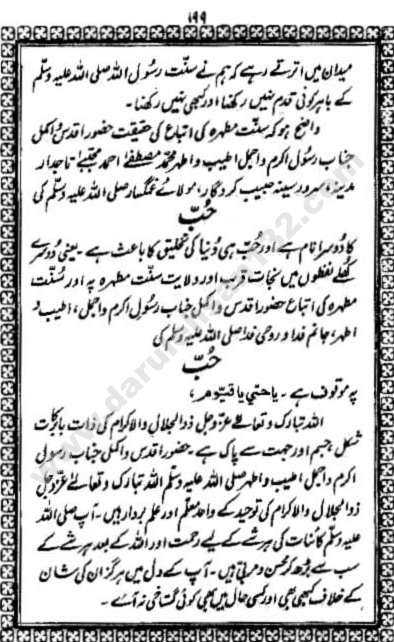 ۱۹۹
میدان میں اترتے رہے کہ ہم نے سنّت رسُول اللہ صلی اللہ علیہ وسلّم
کے باہر کوئی قدم نہیں رکھنا اور کبھی نہیں رکھنا۔
واضح ہو کہ سنّت مطہرہ کی اتباع کی حقیقت حضور اقدس و اکمل
جناب رسول اکرم و اجمل اطیب و اطہر محمد مصطفےٰ احمد مجتبےٰ تاجدار
مدینہ، سرور سینہ حبیب کردگار، مولائے غمگسار صلی اللہ علیہ وسلّم کی
حُبّ
کا دُوسرا نام ہے اور حُبّ ہی دُنیا کی تخلیق کا باعث ہے۔ یعنی دُوسرے
کھلے لفظوں میں نجات و قرب اور ولایت سنّت مطہرہ پہ اور سُنّت
مطہرہ کی اتباع حضور اقدس و اکمل جناب رسول اکرم و اجمل، اطیب و
اطہر، جانم فدا و روحی فدا صلی اللہ علیہ وسلم کی
حُبّ
پر موقوف ہے۔ یا حیّ یا قیّوم،
اللہ تبارک و تعالےٰ عزّ و جل ذوالجلال والاکرام کی ذات بابرکت
شکل، جسم اور جہت سے پاک ہے۔ حضور اقدس و اکمل جناب رسول
اکرم و اجمل اطیب و اطہر صلی اللہ علیہ وسلّم اللہ تبارک و تعالےٰ عزّ و جل
ذوالجلال والاکرام کی توحید کے واحد معلّم اور علم بردار ہیں۔ آپ صلی اللہ
علیہ وسلّم کائنات کی ہر شے کے لیے رحمت اور اللہ کے بعد ہر شے کے
سب سے بڑھ کر محسن و مربّی ہیں۔ آپ کے دل میں ہرگز ان کی شان
کے خلاف کبھی بھی اور کسی حال میں بھی کوئی گستاخی نہ آئے۔